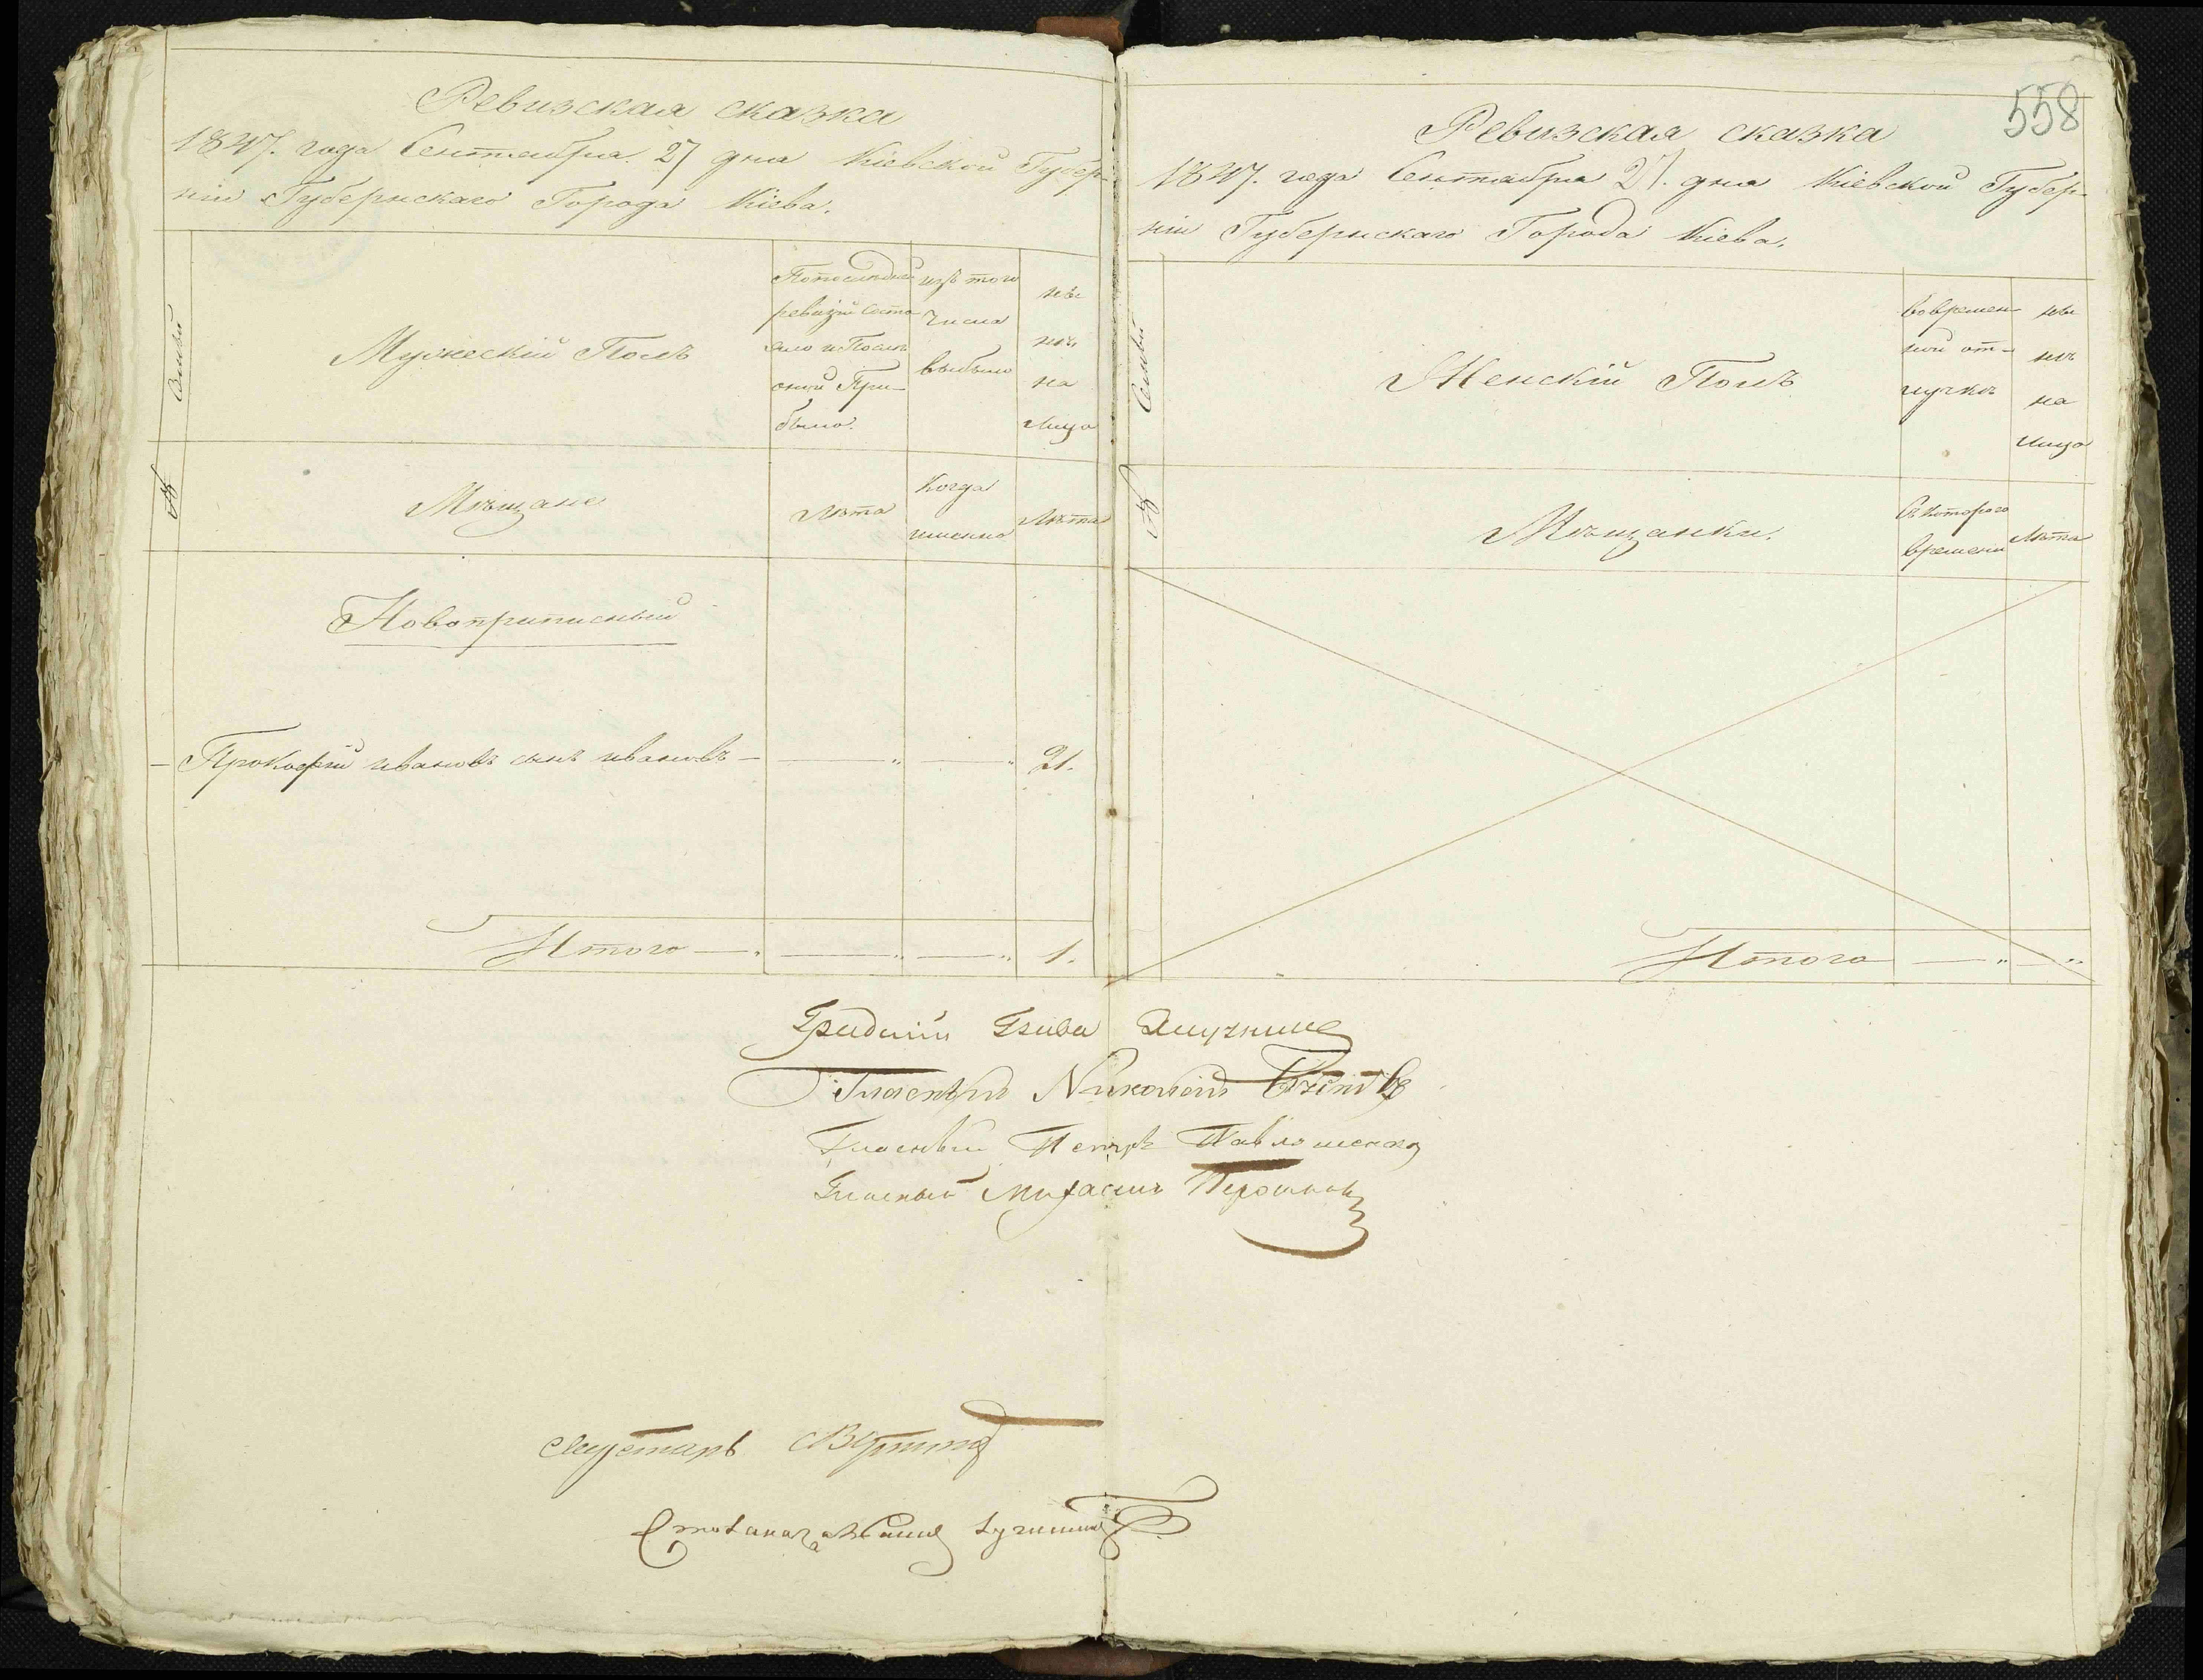 558
Ревизская сказка
1847. года Сентября 27 дня Кіевской Губер-
ніи Губернскаго Города Кіева.
Семьи
Мужескій Полъ
По последней
ревизіи состо
яло и После
оной При-
было.
изъ того
числа
выбыло
ны
нѣ
на
лицо
№
Мѣщане
Лѣта
Когда
именно
Лѣта
Новоприписный
Прокофій ивановъ сынъ ивановъ — 21.
Итого — 1.
Ревизская сказка
1847. года Сентября 27. дня Кіевской Губер-
ніи Губернскаго Города Кіева.
Семьи
Женскій Полъ
во времен-
ной от-
лучкѣ
ны
нѣ
на
лицо
№
Мѣщанки.
Съ котораго
времени
Лѣта
Итого
Глава
Гласный Николай
Гласный Петръ
Гласный Михаилъ
Столоначальникъ